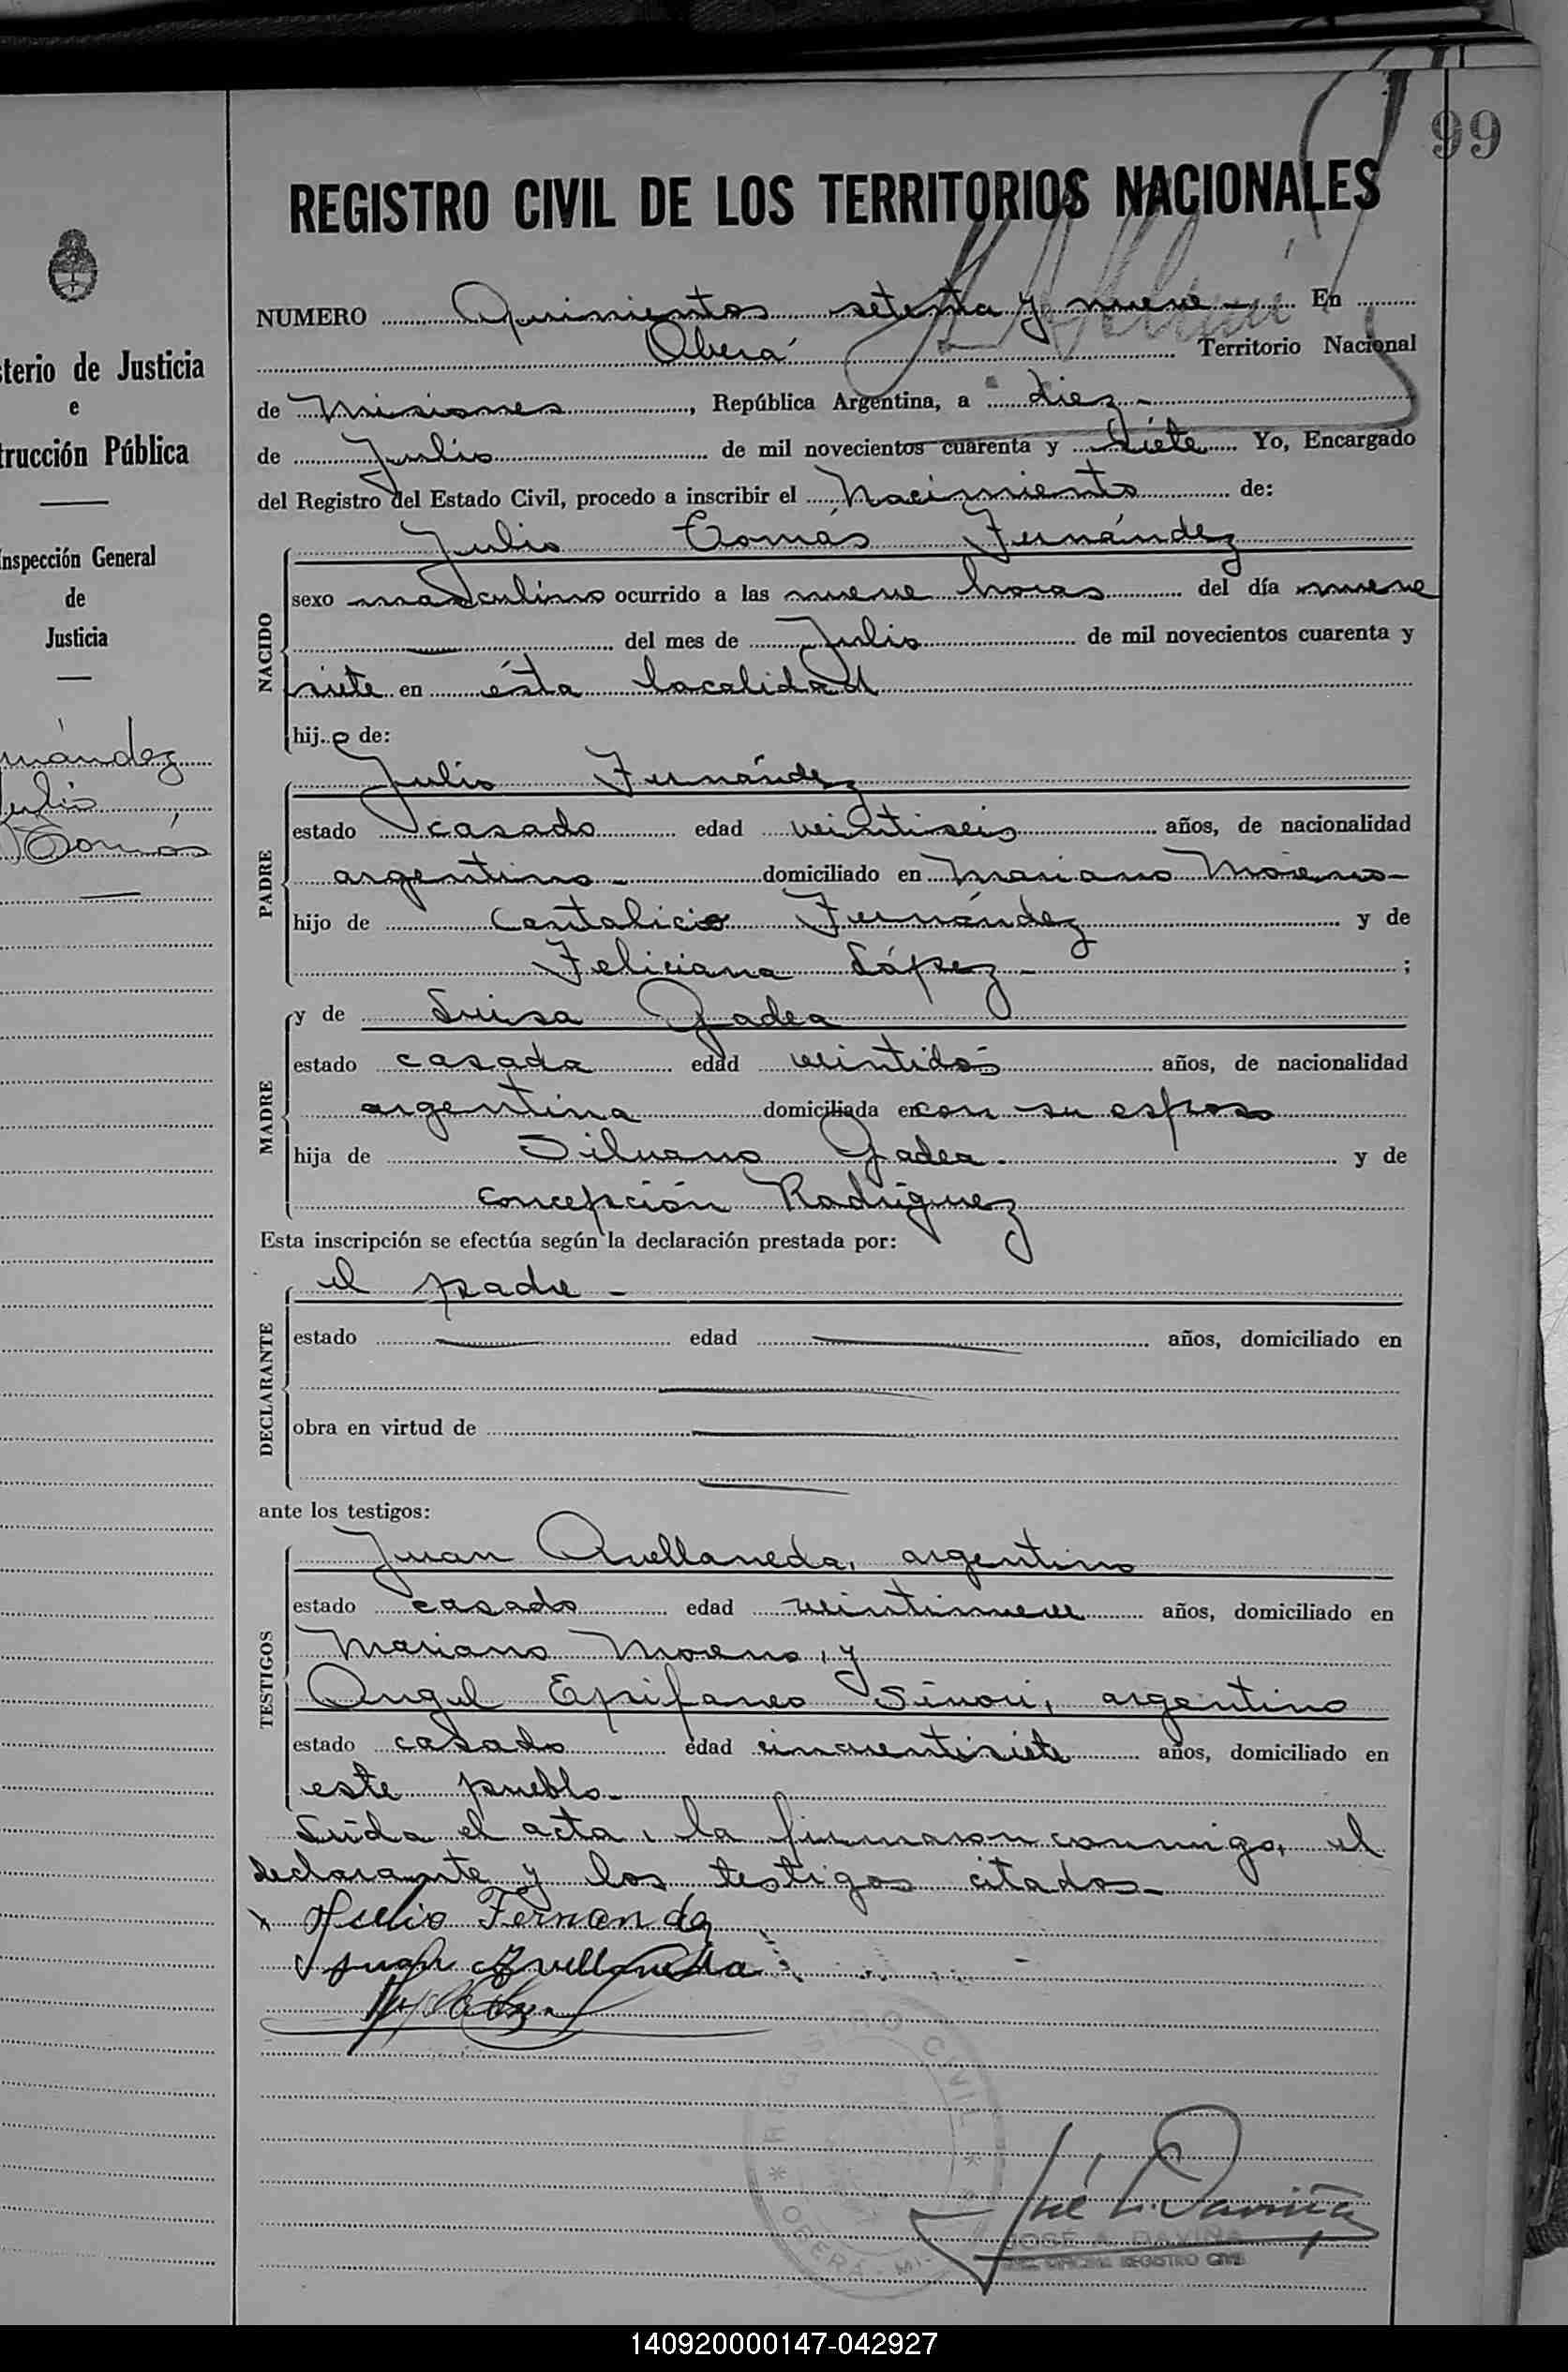 99
REGISTRO CIVIL DE LOS TERRITORIOS NACIONALES
NUMERO Quinientos setenta y nueve - En
Oberá Territorio Nacional
de Misiones, República Argentina, a diez -
de Julio de mil novecientos cuarenta y siete Yo, Encargado
del Registro del Estado Civil, procedo a inscribir el Nacimiento de:
Julio Tomás Fernández
NACIDO
sexo masculino ocurrido a las nueve horas del día nueve
del mes de Julio de mil novecientos cuarenta y
siete en ésta localidad
hijo de:
Julio Fernández
PADRE
estado casado edad veintiseis años, de nacionalidad
argentino - domiciliado en Mariano Moreno -
hijo de Cantalicio Fernández y de
Feliciana López - ;
y de Luisa Gadea
MADRE
estado casada edad veintidós años, de nacionalidad
argentina domiciliada en con su esposo
hija de Silvano Gadea - y de
Concepción Rodríguez
Esta inscripción se efectúa según la declaración prestada por:
el padre -
DECLARANTE
estado edad años, domiciliado en
obra en virtud de
ante los testigos:
Juan Avellaneda, argentino
TESTIGOS
estado casado edad veintinueve años, domiciliado en
Mariano Moreno, y
Angel Epifaneo argentino
estado casado edad cincuentisiete años, domiciliado en
este pueblo -
Leída el acta, la firmaron conmigo, el
declarante y los testigos citados -
Julio Fernandez
Juan Avellaneda
REGISTRO CIVIL
OBERÁ - MI
José A. Daviña
JOSE A. DAVIÑA
REGISTRO CIVIL
sterio de Justicia
e
trucción Pública
Inspección General
de
Justicia
rnández
Julio
Tomás
140920000147-042927